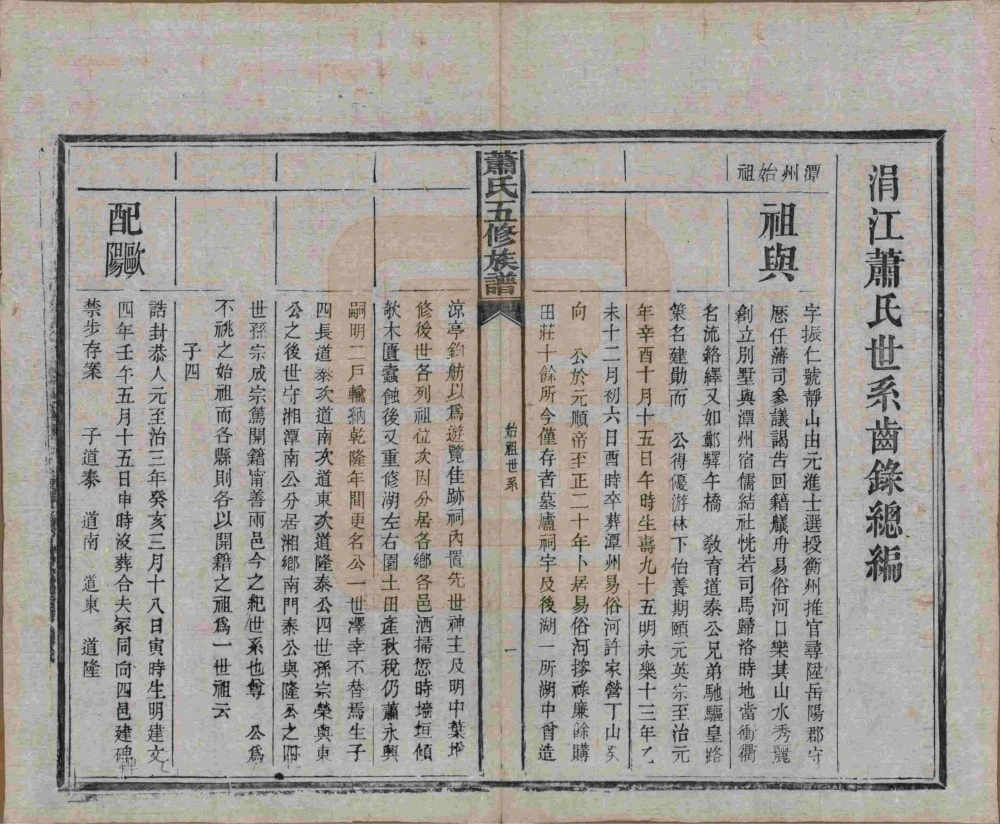 涓江蕭氏世系齒錄總編
潭州始祖
祖與
字振仁號靜山由元進士選授衡州推官尋陞岳陽郡守
歷任藩司參議謁告回籍艤舟易俗河口樂其山水秀麗
創立別墅與潭州宿儒結社恍若司馬歸洛時地當衝衢
名流絡繹又如鄭驛午橋 敎育道泰公兄弟馳驅皇路
策名建勛而 公得優游林下怡養期頤元英宗至治元
年辛酉十月十五日午時生壽九十五明永樂十三年乙
未十二月初六日酉時卒葬潭州易俗河許家營丁山癸
向 公於元順帝至正二十年卜居易俗河捴祿廉餘購
田莊十餘所今僅存者墓廬祠宇及後湖一所湖中曾造
蕭氏五修族譜
始祖世系
一
涼亭釣舫以爲遊覽佳跡祠內置先世神主及明中葉增
修後世各列祖位次因分居各鄉各邑洒掃愆時墻垣傾
欹木匱蠹蝕後又重修湖左右園土田產秋稅仍蕭永興
嗣明二戶輸納乾隆年間更名公一世澤幸不替焉生子
四長道泰次道南次道東次道隆泰公四世孫宗榮與東
公之後世守湘潭南公分居湘鄉南門泰公與隆公之四
世孫宗成宗萬開籍甯善兩邑今之紀世系也尊 公爲
不祧之始祖而各縣則各以開籍之祖爲一世祖云
子四
配歐陽
誥封恭人元至治三年癸亥三月十八日寅時生明建文
四年壬午五月十五日申時沒葬合夫冢同向四邑建碑
禁步存案 子道泰 道南 道東 道隆